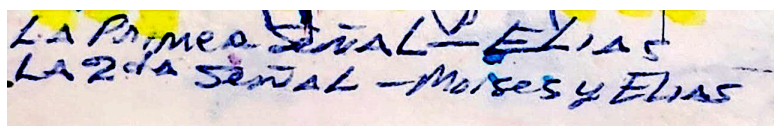 LA Primera Señal - ELIAS
LA 2da Señal - Moises y Elias